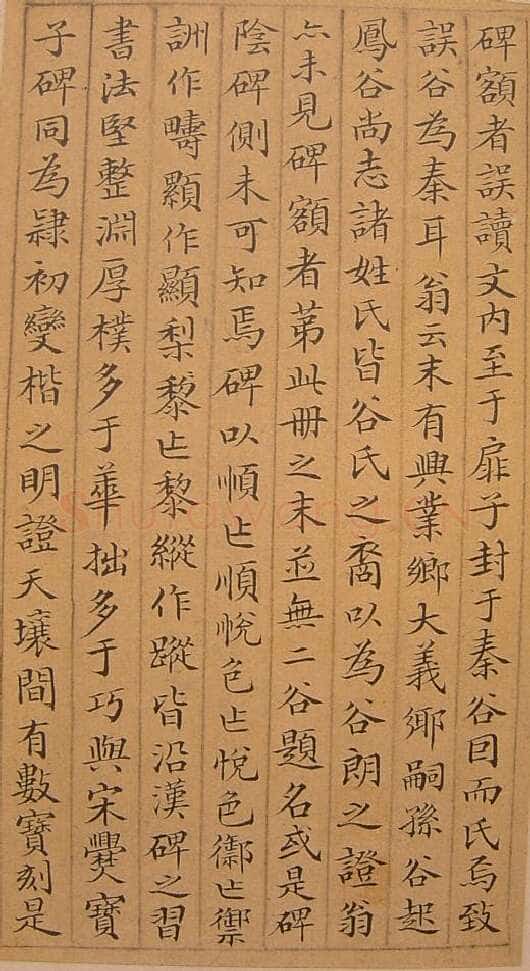 碑額者誤讀文内至于扉子封于秦谷因而氏焉致
誤谷為秦耳翁云末有興業鄉大義鄉嗣孫谷起
鳳谷尚志諸姓氏皆谷氏之裔以為谷朗之證翁
亦未見碑額者苐此册之末並無二谷題名或是碑
陰碑側未可知焉碑以㥧作順悅色作悅色禦作禦
詶作疇顯作顯梨黎作黎縱作蹤皆沿漢碑之習
書法堅整淵厚樸多于華拙多于巧與宋爨寶
子碑同為隸初變楷之明證天壤間有數寶刻是